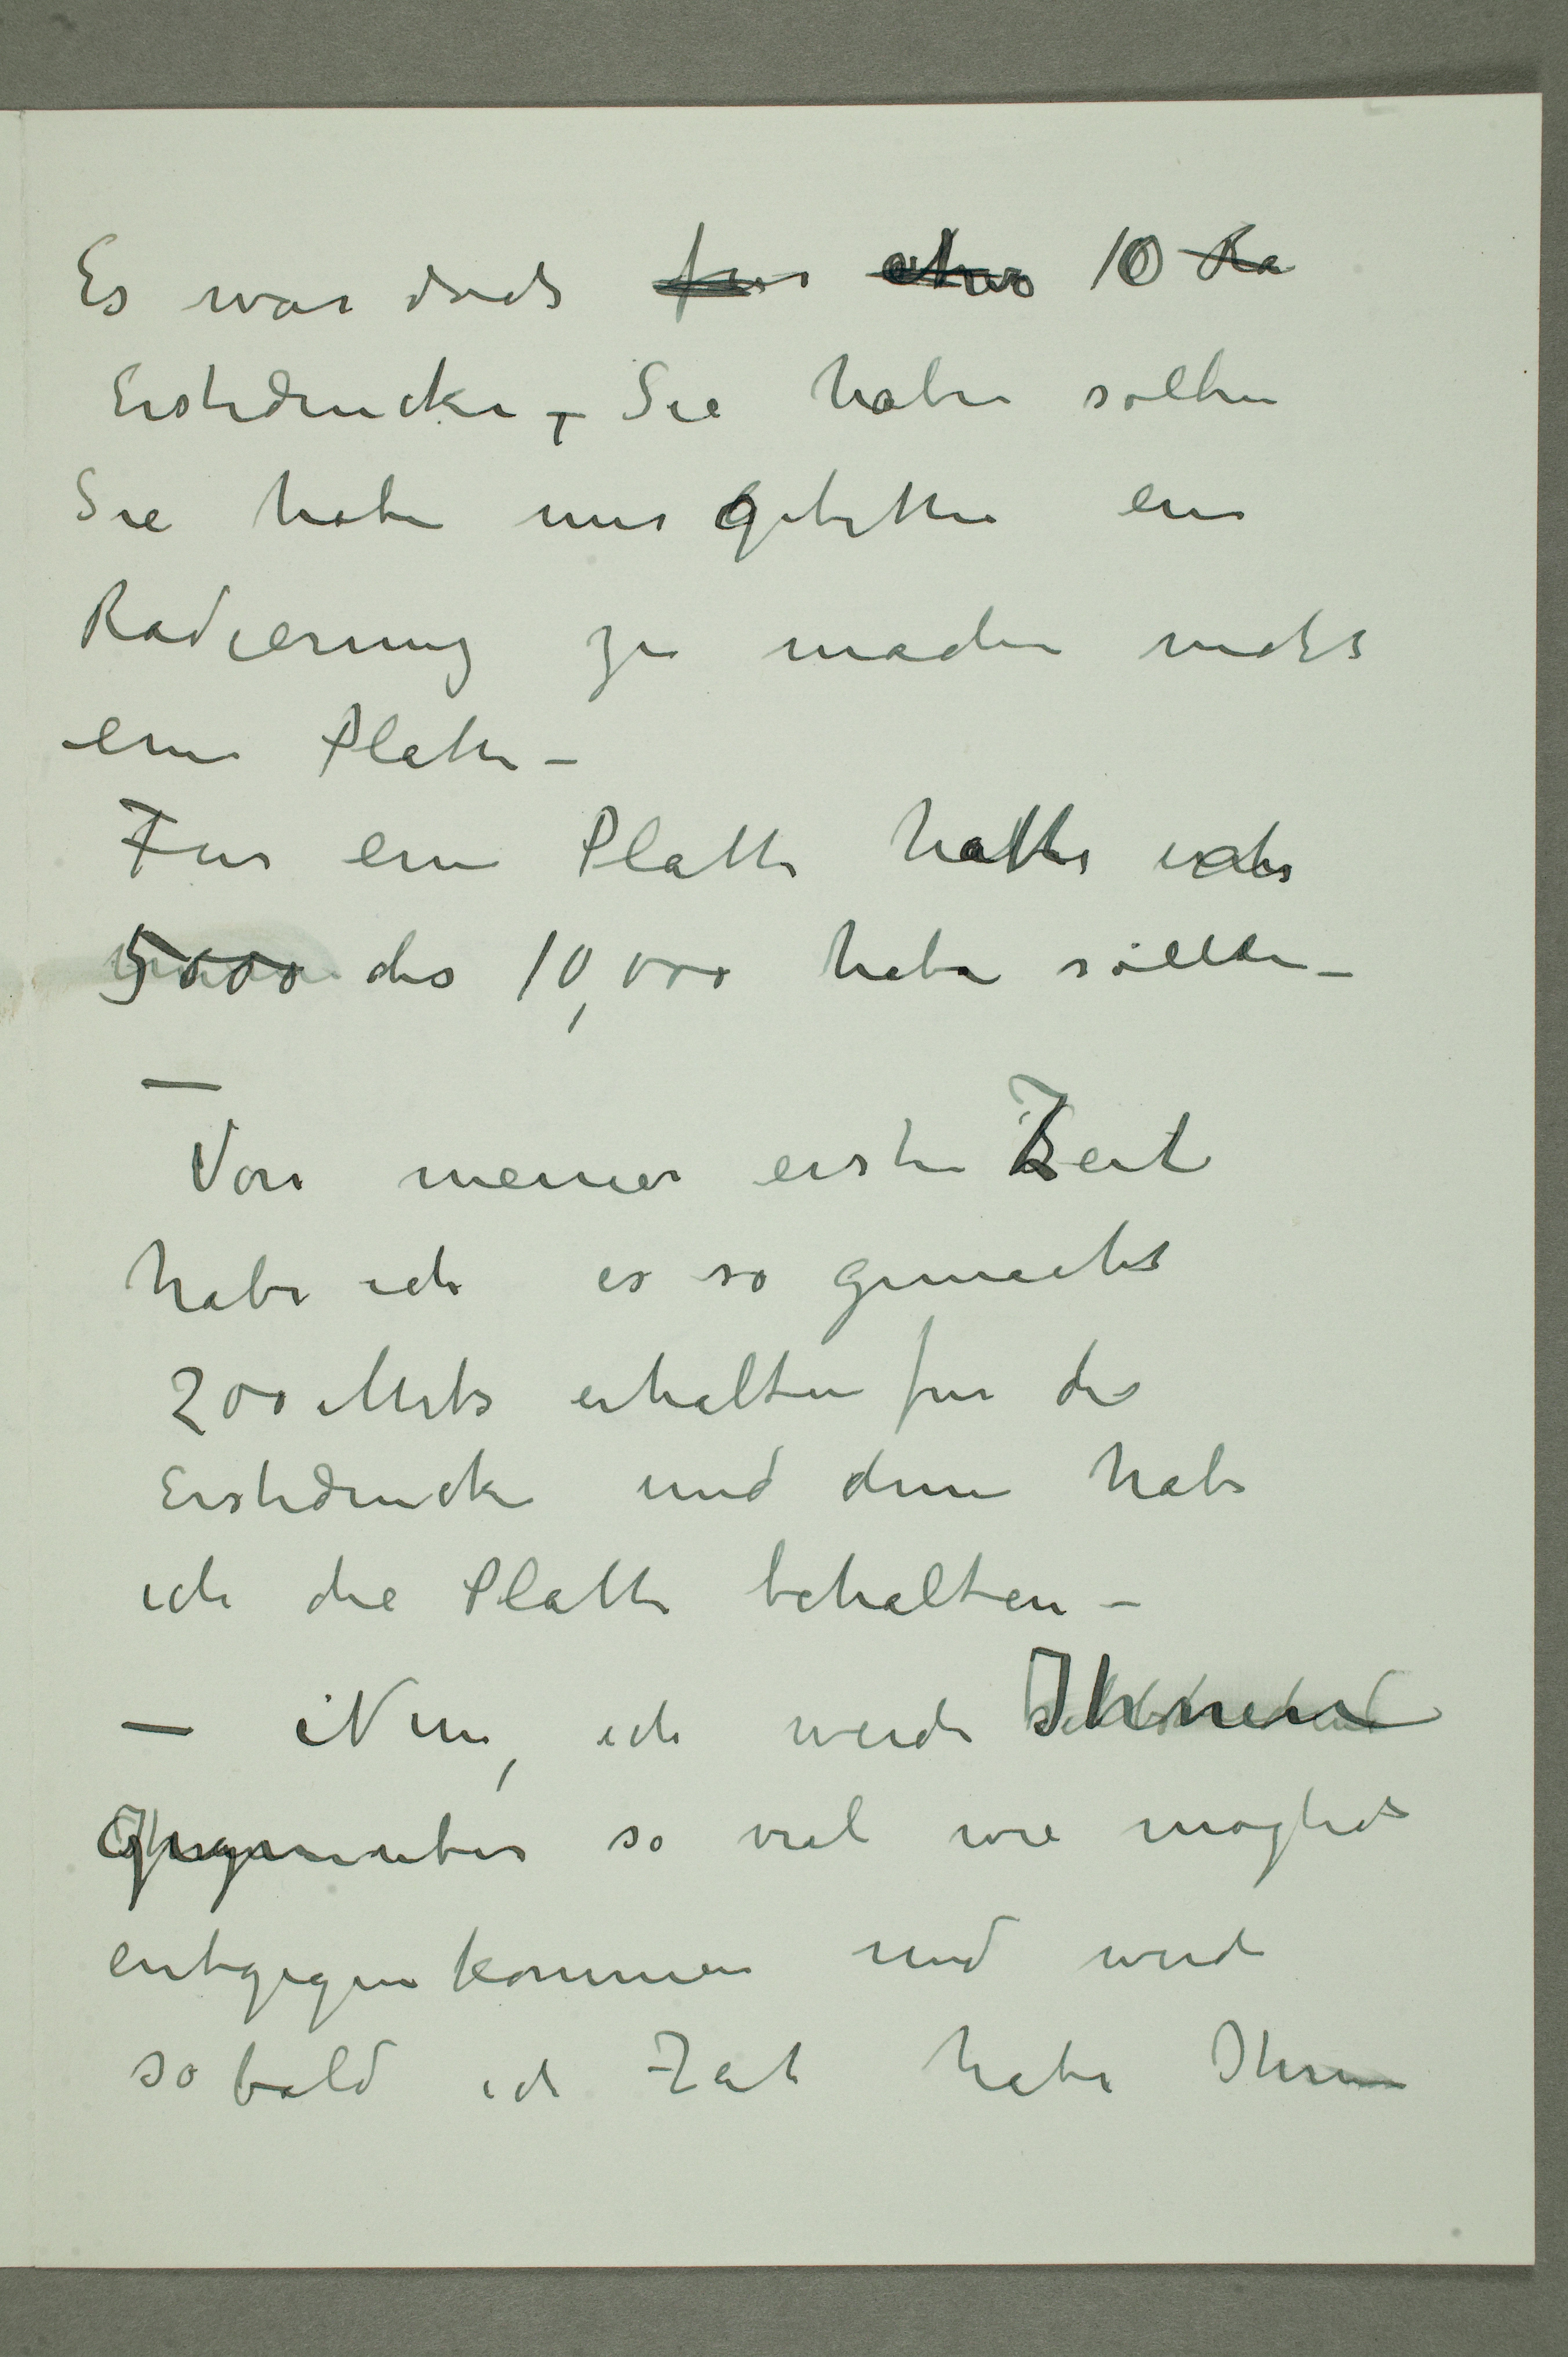 Es war doch für etwas 10 Ra
Erstedrucke, – Sie haben sollen
Sie haben mir gebetten eine
Radierung zu machen nicht
eine Platte –
Fur eine Platte hatte ich
5000 bis 10,000 haben sollen –
—
Von meiner ersten Zeit
habe ich es so gemacht
200 Mk erhalten fur die
Erstedrucke und dann habe
ich die Platte behalten –
– Nun, ich werde Ihnen
gegenuber so viel wie moglich
entgegenkommen und werde
sobald ich Zeit habe Ihnen